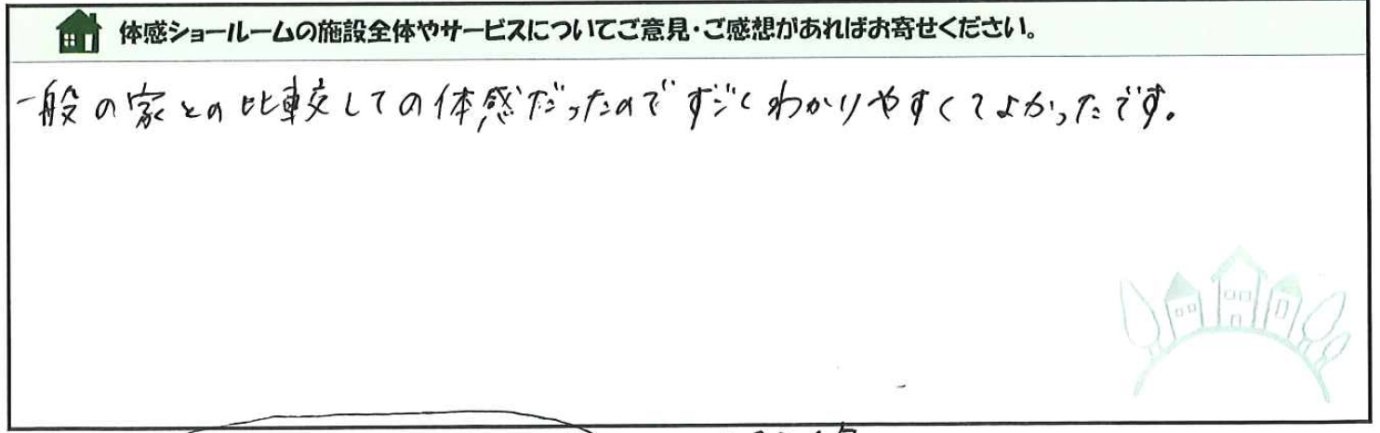 体感ショールームの施設全体やサービスについてご意見・ご感想があればお寄せください。
一般の家との比較しての体感だったのですごくわかりやすくてよかったです。